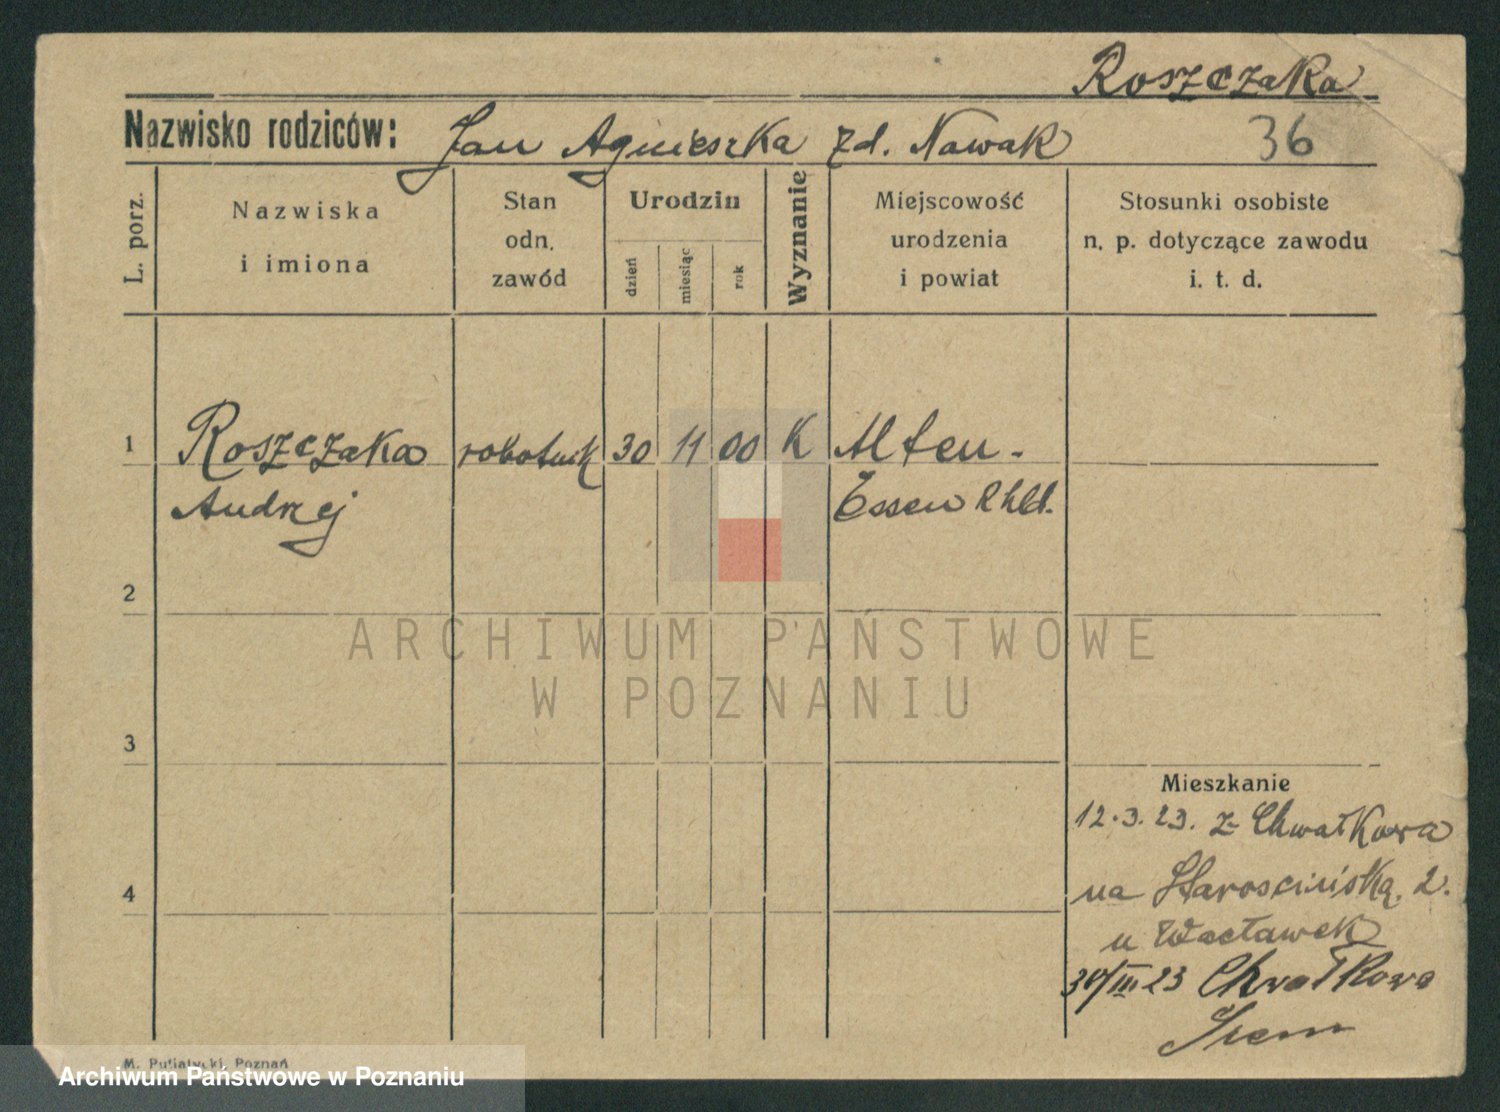 Roszczaka
Nazwisko rodziców: Jan Agnieszka zd. Nowak
36
L. porz.
Nazwiska
i imiona
Stan
odn.
zawód
Urodzin
dzień
miesiąc
rok
Wyznanie
Miejscowość
urodzenia
i powiat
Stosunki osobiste
n. p. dotyczące zawodu
i. t. d.
1 Roszczaka robotnik 30 11 00 K Alten-
Andrzej Essen Rhld.
2
ARCHIWUM PAŃSTWOWE
W POZNANIU
3
Mieszkanie
12.3.23. z Chwałkowa
na Starościńską. 2.
4
u Wacławek
30/III 23 Chwałkowo
Śrem
M. Putiatycki, Poznań
Archiwum Państwowe w Poznaniu